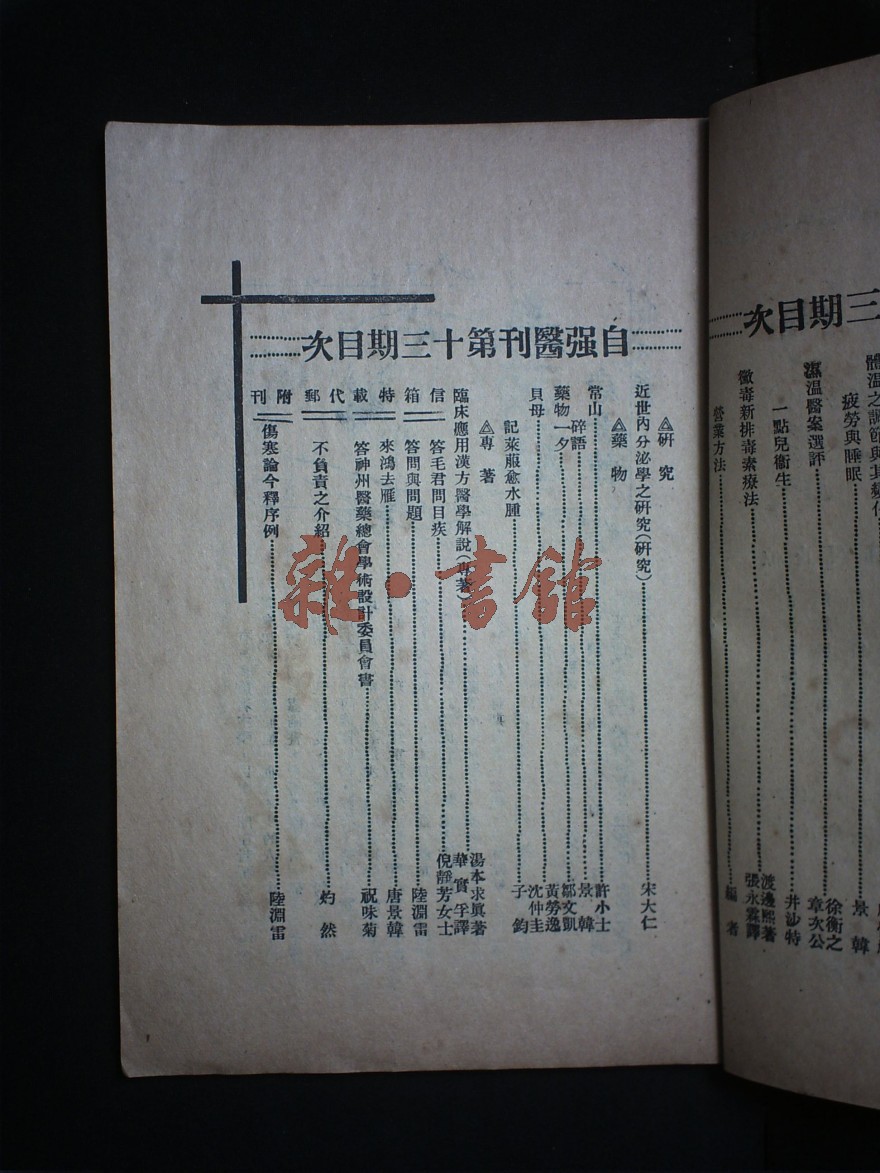 三期目次
體溫之調節與其變化
疲勞與睡眠 景韓
濕溫醫案選評 徐衡之 章次公
一點兒衞生 井沙特
黴毒新排毒素療法 渡邊熙著 張永霖譯
營業方法 編者
自强醫刊第十三期目次
研究
近世內分泌學之硏究(硏究) 宋大仁
藥物
常山 許小士
碎語 景韓
藥物一夕 鄒文凱 黃勞逸
貝母 沈仲圭
記萊菔愈水腫 子鈞
專著
臨床應用漢方醫學解說(專著) 湯本求眞著 華實孚譯
信箱 特載 代郵 附刊
答毛君問目疾 倪靜芳女士
答問與問題 陸淵雷
來鴻去雁 唐景韓
答神州醫藥總會學術設計委員會書 祝味菊
不負責之介紹 灼然
傷寒論今釋序例 陸淵雷
雜·書館